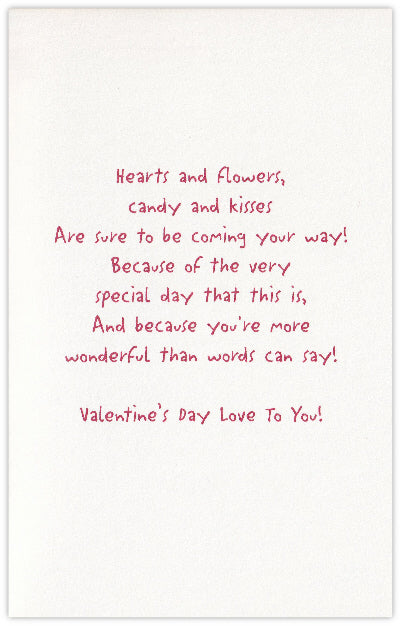 Hearts and flowers,
candy and kisses
Are sure to be coming your way!
Because of the very
special day that this is,
And because you're more
wonderful than words can say!
Valentine's Day Love To You!